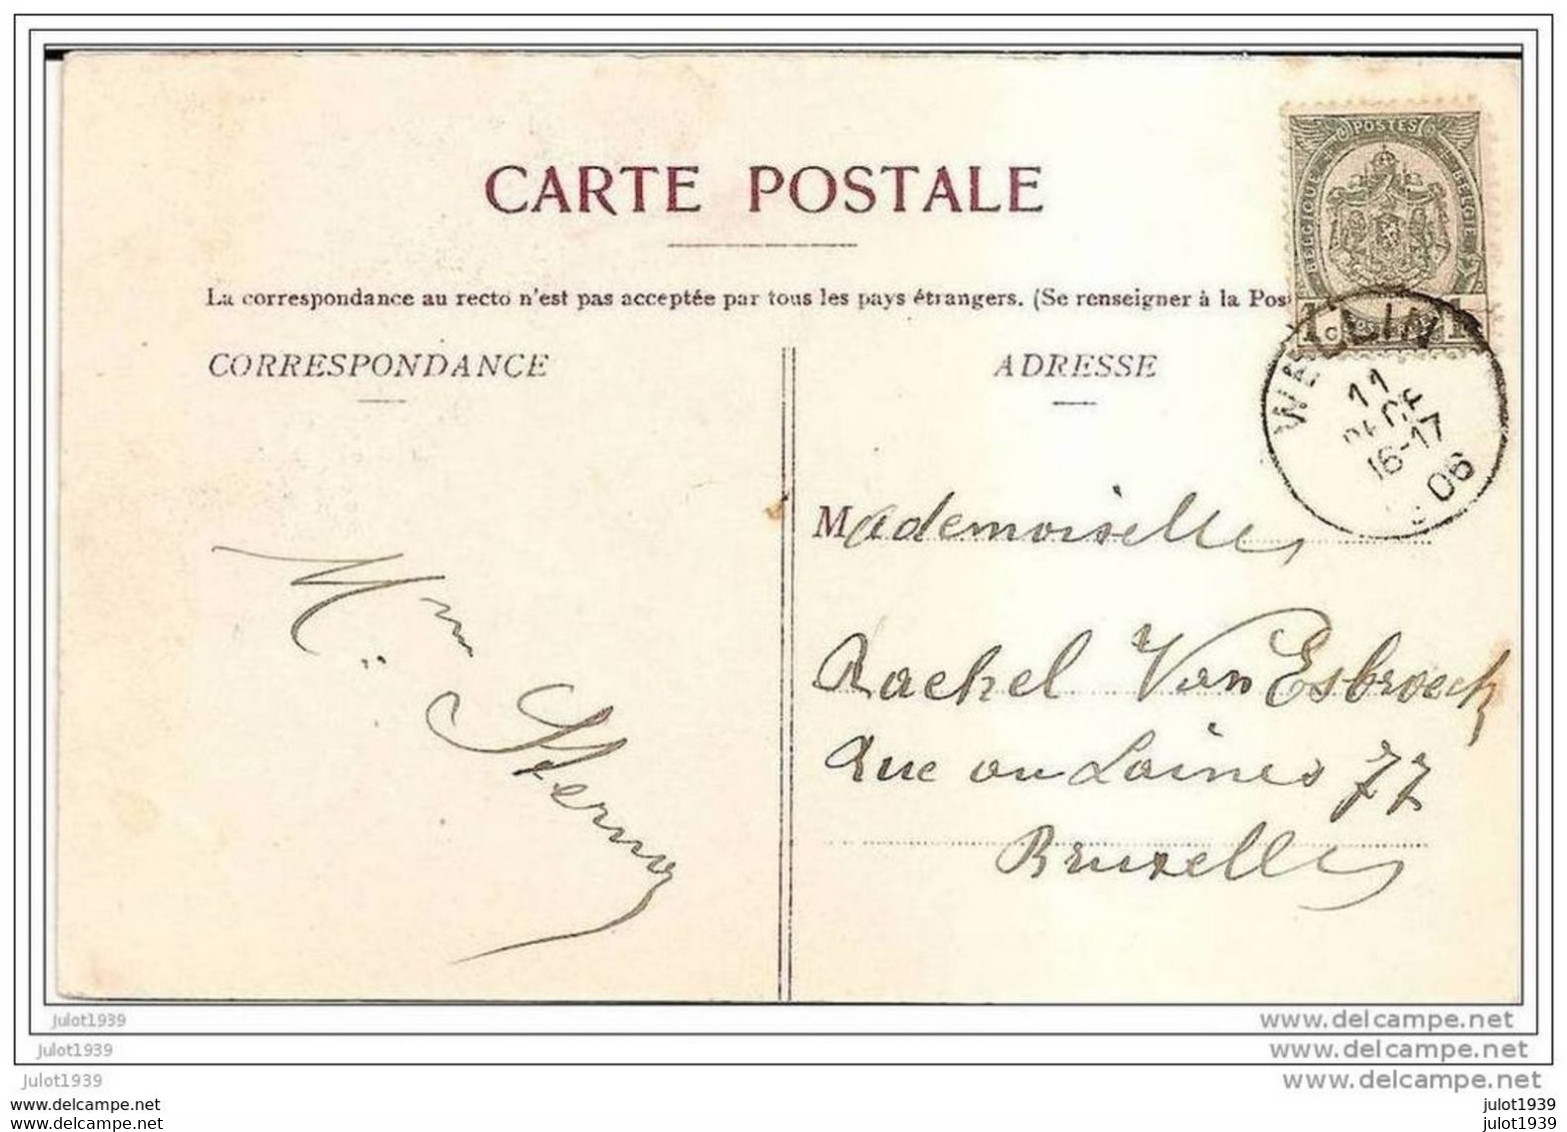 CARTE POSTALE
POSTES
BELGIQUE BELGIE
La correspondance au recto n'est pas acceptée par tous les pays étrangers. (Se renseigner à la Pos
1 1
WELLIN
11
DECE
16-17
06
CORRESPONDANCE
ADRESSE
Mademoiselle
Rachel Van Esbroeck
Rue au Laines 77
Bruxelles
Mme
julot1939
www.delcampe.net
julot1939
www.delcampe.net
julot1939
www.delcampe.net
www.delcampe.net
julot1939
www.delcampe.net
julot1939